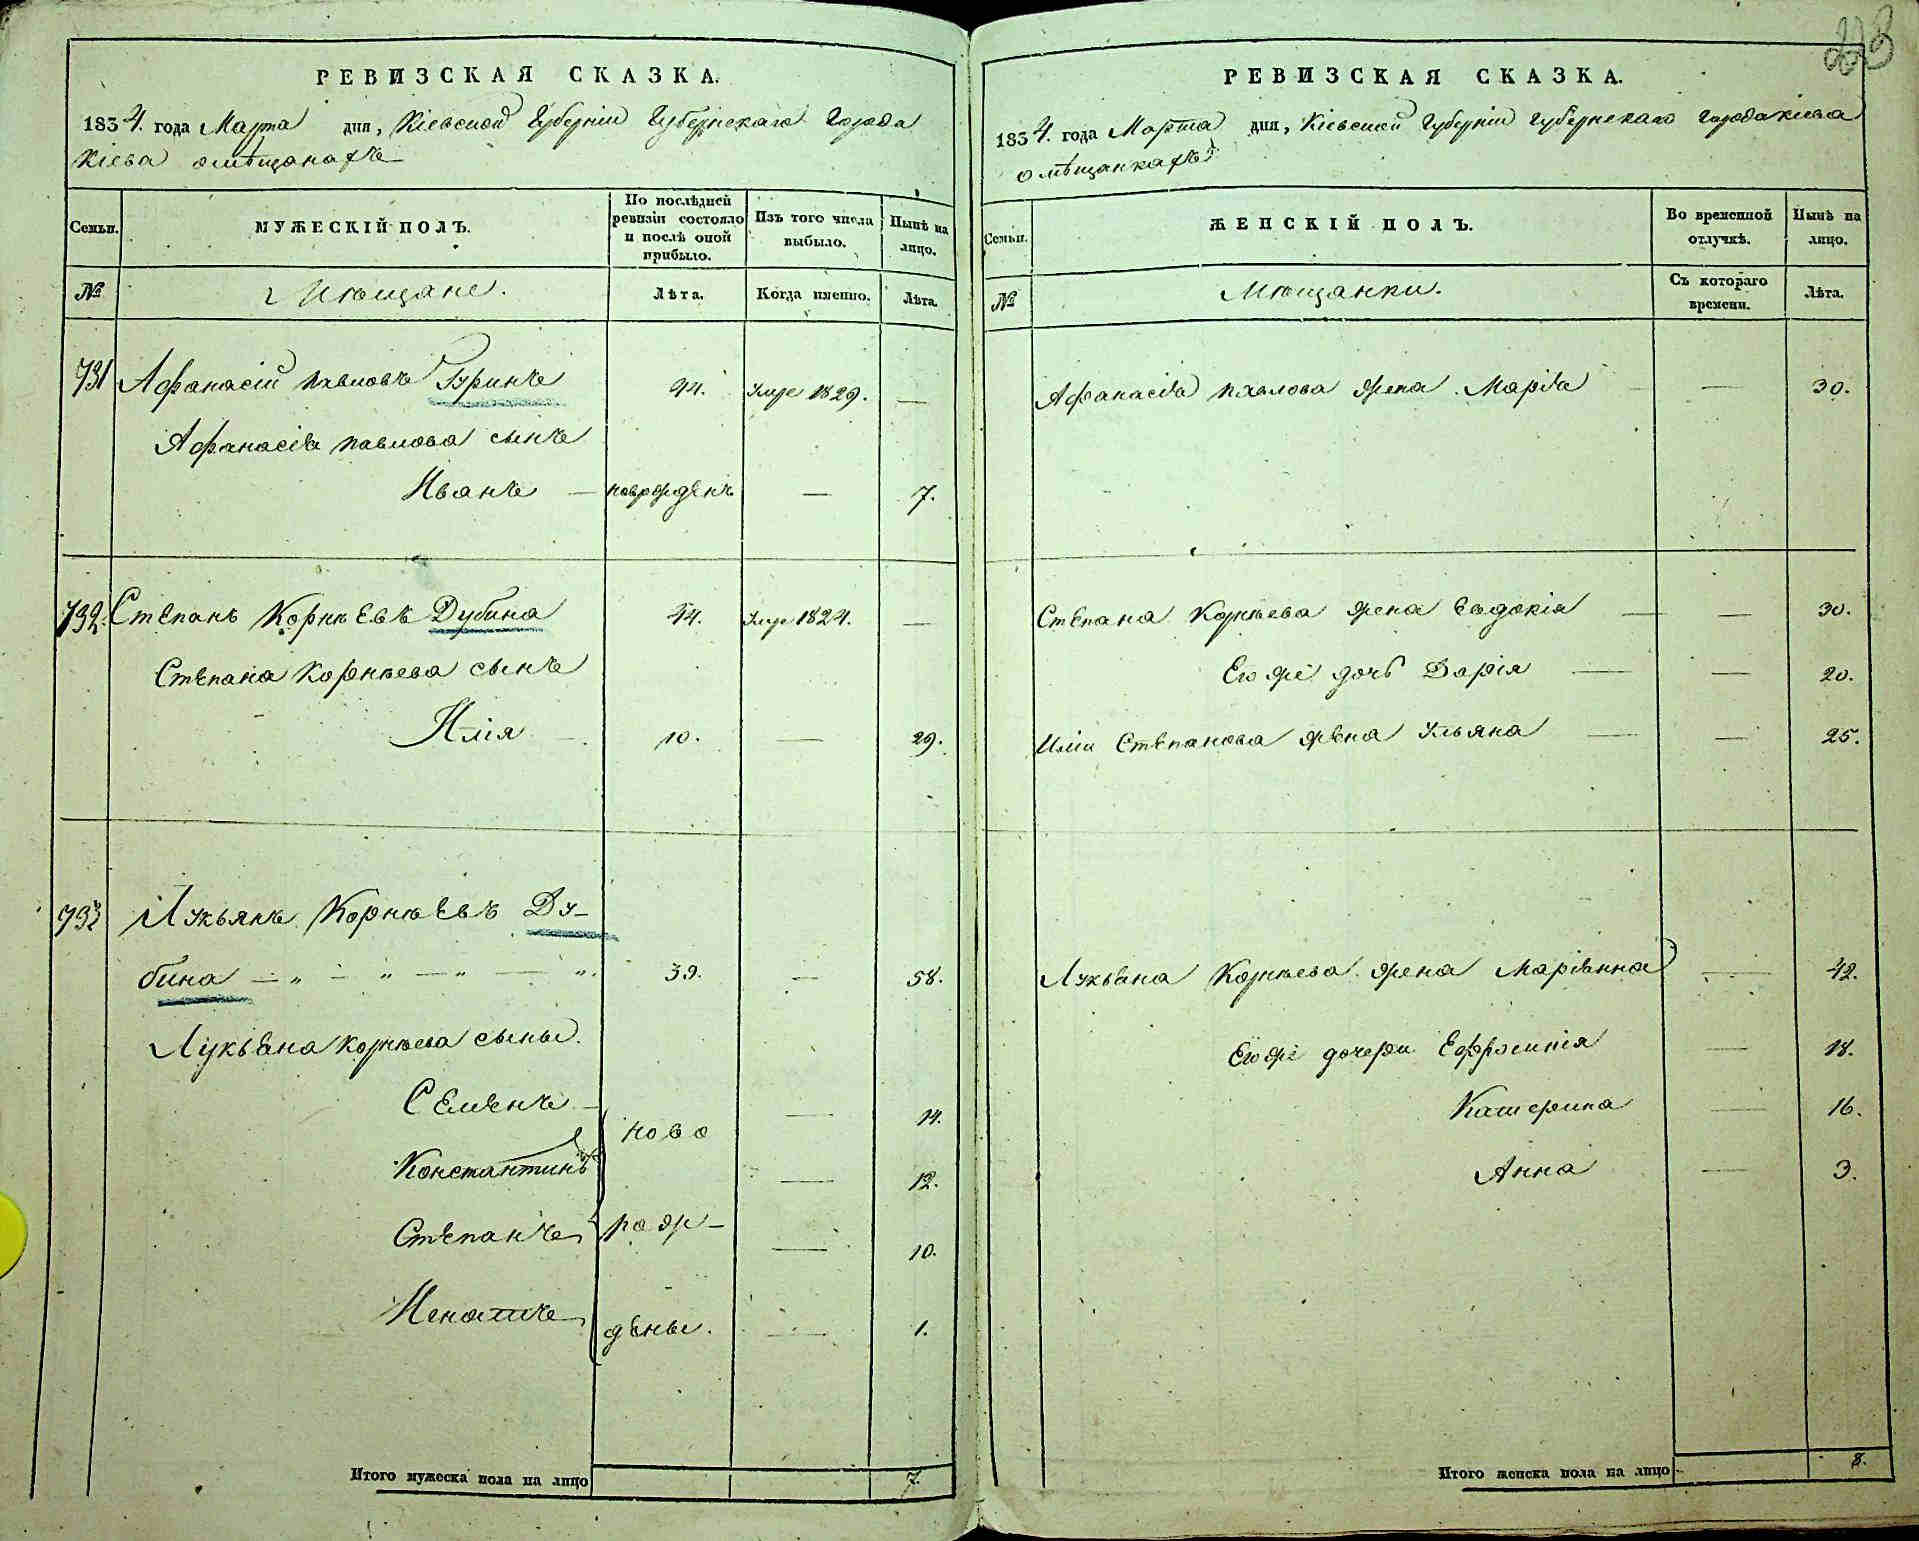 РЕВИЗСКАЯ СКАЗКА.
1834. года Марта дня, Кіевской Губерніи Губернскаго Города
Кіева о мѣщанахъ
Семьи.
МУЖЕСКІЙ ПОЛЪ.
По послѣдней ревизіи состояло и послѣ оной прибыло.
Изъ того числа выбыло.
Нынѣ на лицо.
№
Мѣщане.
Лѣта.
Когда именно.
Лѣта.
731 Афанасій Павловъ Гуринъ 44. Умре 1829. —
Афанасія Павлова сынъ
Иванъ — новрожденъ — 7.
732. Степанъ Корнѣевъ Дубина 44. Умре 1824. —
Степана Корнѣева сынъ
Илія 10. — 29.
733 Лукьянъ Корнѣевъ Ду-
бина 39. — 58.
Лукьяна Корнѣева сыны.
Семенъ — 14.
ново
Константинъ — 12.
Степанъ рож- — 10.
Игнатъ дены. — 1.
Итого мужеска пола на лицо 7.
223
РЕВИЗСКАЯ СКАЗКА.
1834. года Марта дня, Кіевской Губерніи Губернскаго Города Кіева
о мѣщанкахъ
Семьи.
ЖЕНСКІЙ ПОЛЪ.
Во временной отлучкѣ.
Нынѣ на лицо.
№
Мѣщанки.
Съ котораго времени.
Лѣта.
Афанасія Павлова жена Марія — — 30.
Степана Корнѣева жена Евдокія — — 30.
Его же дочь Дарія — — 20.
Иліи Степанова жена Ульяна — — 25.
Лукьяна Корнѣева жена Маріанна — 42.
Его же дочери Ефросинія — 18.
Катерина — 16.
Анна — 3.
Итого женска пола на лицо 8.